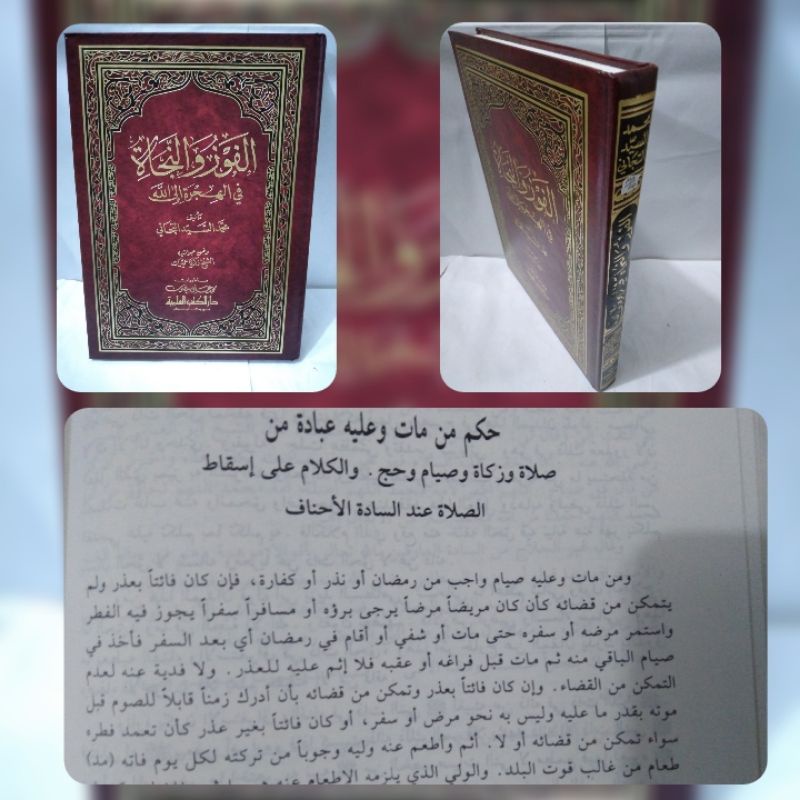 الفوز والنجاة
في الهجرة إلى الله
تأليف
محمد السيد التجاني
دار الكتب العلمية
محمد
السيد
التجاني
حكم من مات وعليه عبادة من
صلاة وزكاة وصيام وحج . والكلام على إسقاط
الصلاة عند السادة الأحناف
ومن مات وعليه صيام واجب من رمضان أو نذر أو كفارة، فإن كان فائتاً بعذر ولم
يتمكن من قضائه كأن كان مريضاً مرضاً يرجى برؤه أو مسافراً سفراً يجوز فيه الفطر
واستمر مرضه أو سفره حتى مات أو شفي أو أقام في رمضان أي بعد السفر فأخذ في
صيام الباقي منه ثم مات قبل فراغه أو عقبه فلا إثم عليه للعذر . ولا فدية عنه لعدم
التمكن من القضاء. وإن كان فائتاً بعذر وتمكن من قضائه بأن أدرك زمناً قابلاً للصوم قبل
موته بقدر ما عليه وليس به نحو مرض أو سفر، أو كان فائتاً بغير عذر كأن تعمد فطره
سواء تمكن من قضائه أو لا. أثم وأطعم عنه وليه وجوباً من تركته لكل يوم فاته (مد)
طعام من غالب قوت البلد. والولي الذي يلزمه الإطعام عنه